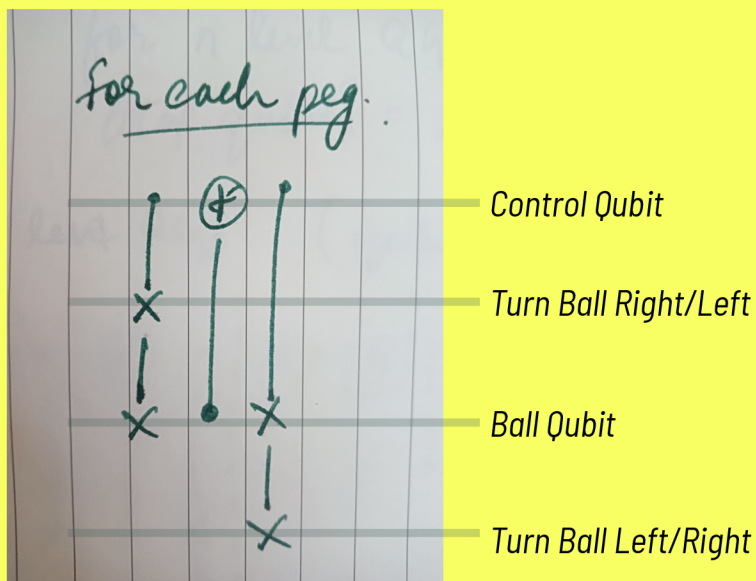 for each peg.
Control Qubit
Turn Ball Right/Left
Ball Qubit
Turn Ball Left/Right